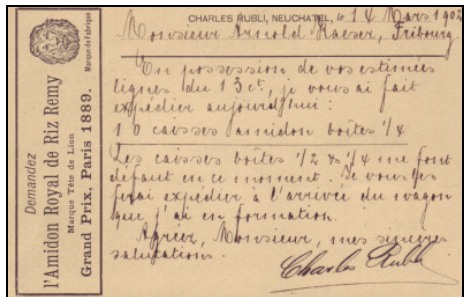 Marque de Fabrique
Demandez
l'Amidon Royal de Riz Remy
Marque Tête de Lion
Grand Prix, Paris 1889.
CHARLES RUBLI, NEUCHATEL, le 14 Mars 1902
Monsieur Arnold Kaeser, Fribourg.
En possession de vos estimées
lignes du 13 ct, je vous ai fait
expédier aujourd'hui :
16 caisses amidon boîtes 1/4
Les caisses boîtes 1/2 & 1/4 me font
défaut en ce moment. Je vous les
ferai expédier à l'arrivée du wagon
que j'ai en formation.
Agréez, Monsieur, mes sincères
salutations.
Charles Rubli